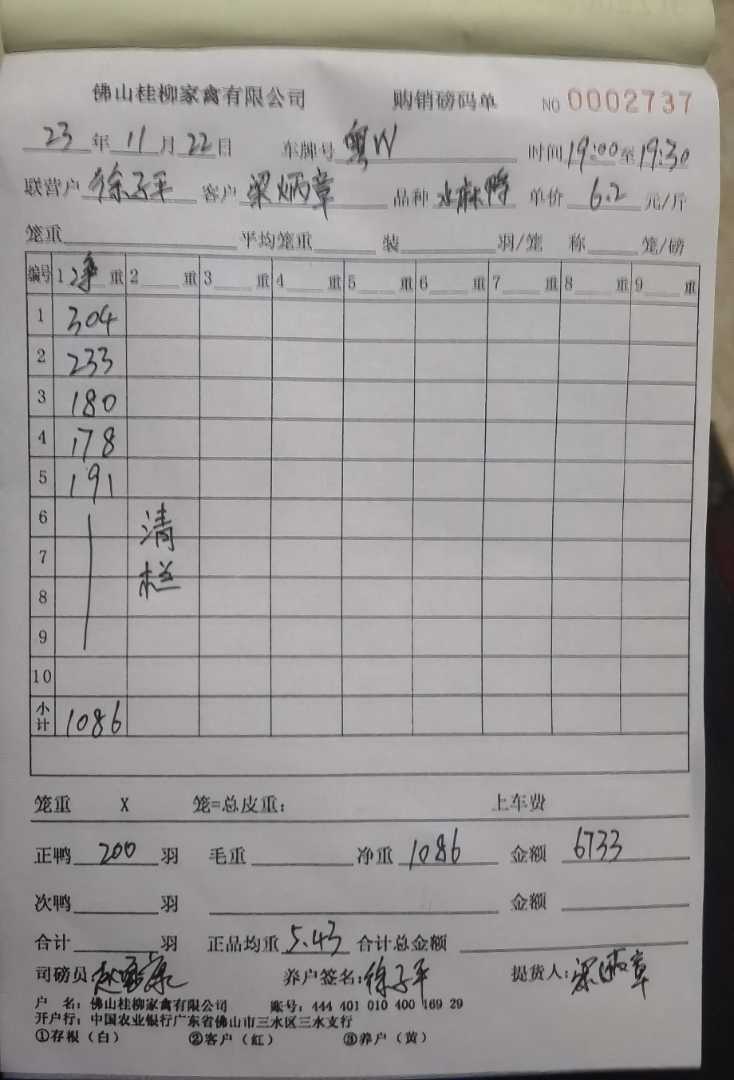 佛山桂柳家禽有限公司 购销磅码单 NO 0002737
23 年 11 月 22 日 车牌号 粤W 时间 19:00 至 19:30
联营户 徐子平 客户 梁炳章 品种 水麻鸭 单价 6.2 元/斤
笼重 平均笼重 装 羽/笼 称 笼/磅
编号 1 净 重 2 重 3 重 4 重 5 重 6 重 7 重 8 重 9 重
1 304
2 233
3 180
4 178
5 191
6 清
7
8 栏
9
10
小计 1086
笼重 X 笼=总皮重: 上车费
正鸭 200 羽 毛重 净重 1086 金额 6733
次鸭 羽 金额
合计 羽 正品均重 5.43 合计总金额
司磅员 养户签名: 徐子平 提货人: 梁炳章
户 名: 佛山桂柳家禽有限公司 账号: 444 401 010 400 169 29
开户行: 中国农业银行广东省佛山市三水区三水支行
①存根(白) ②客户(红) ③养户(黄)